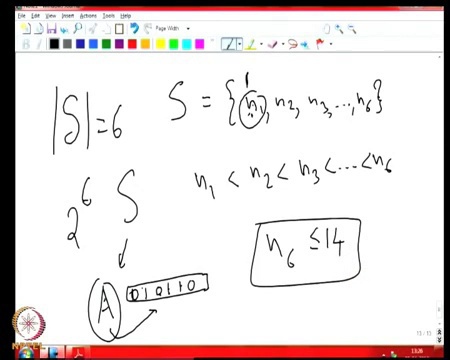 File Edit View Insert Actions Tools Help
Page Width
|S| = 6
S = {n₁, n₂, n₃, ..., n₆}
1
n₁ < n₂ < n₃ < ... < n₆
2⁶ S
n₆ ≤ 14
A
010110
15/15
13:26